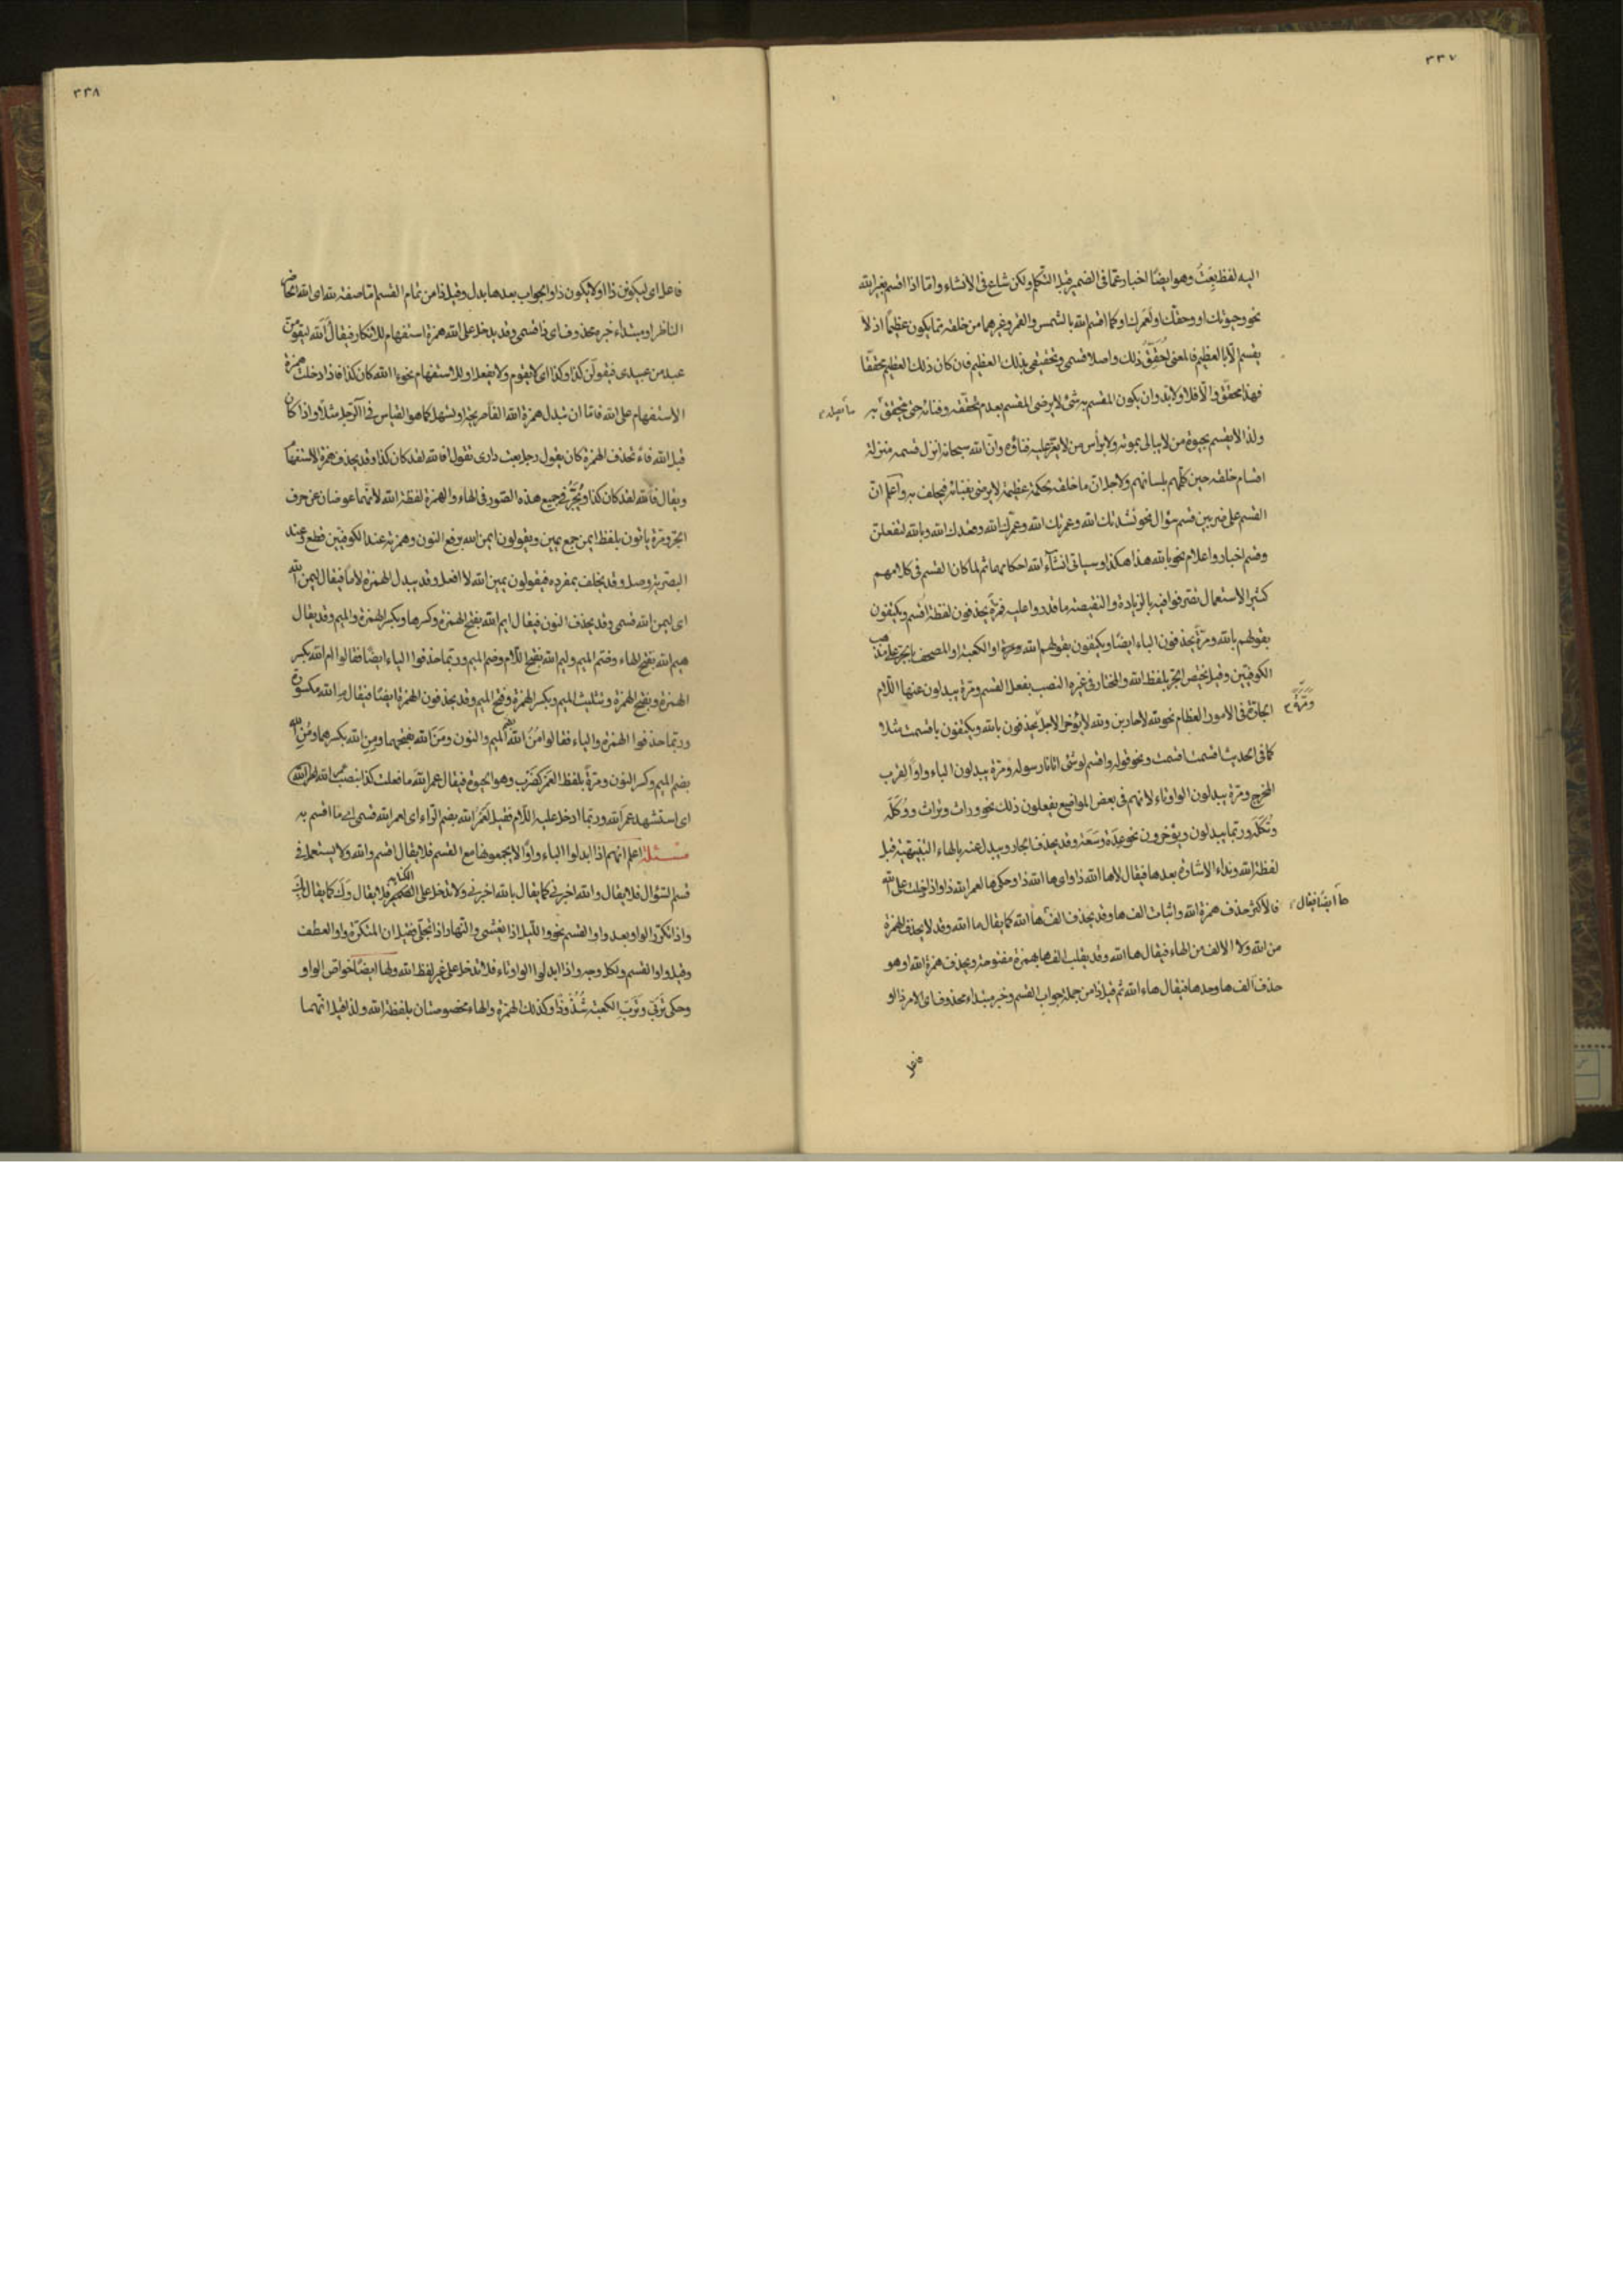 ٣٣٧
اليه لفظ بعتُ وهو ايضًا اخبار عمّا فى الضمير قبل التكلم ولكن شاع فى الانشاء وامّا اذا اقسم بغير الله
نحو وحيوتك او وحقّك او لَعَمرك او كما اقسم الله بالشمس والقمر وغيرهما من خلقه ممّا يكون عظيمًا اذ لا
يقسم الّا بالعظيم فالمعنى لَحقّقُ ذلك واصل قسمى وتحقيقى بذلك العظيم فان كان ذلك العظيم محققًا
فهذا محقّق والّا فلا ولا بد وان يكون المقسم به شئ لا يرضى المقسم بعدم تحققه وفنائه حتى يتحقق به
ولذا لا يقسم بحيوة من لا يبالى بموته ولا برأس من لا يعز عليه فناؤه وانّ الله سبحانه انزل قسمه منزلة
اقسام خلقه حين كلّمهم بلسانهم ولاجل انّ ما خلقه بحكمة عظيمة لا يرضى بفنائه فيحلف به واعلم انّ
القسم على ضربين قسم سؤال نحو نشدتك الله وعمرتك الله وعمرك الله وقعدك الله وبالله لتفعلنّ
وقسم اخبار واعلام نحو بالله هذا هكذا وسياتى انشآء الله احكامهما ثم لما كان القسم فى كلامهم
كثير الاستعمال تصرفوا فيه بالزيادة والنقيصة ما قدروا عليه فمرّةً يحذفون لفظة اُقسم ويكتفون
بقولهم بالله ومرّةً يحذفون الباء ايضًا ويكتفون بقولهم الله وعزة او الكعبة او المصحف بالجر على مذهب
الكوفيّين وقيل يختص الجر بلفظ الله والمختار فى غيره النصب بفعل القسم ومرّة يبدلون عنها اللّام
الجارّة فى الامور العظام نحو لله لاحاربن ولله لا يؤخر الاجل يحذفون بالله ويكتفون باقسمت مثلا
كما فى الحديث اقسمت اقسمت ونحو قوله واقسم لو شئ اتانا رسوله ومرّة يبدلون الباء واوًا لقرب
المخرج ومرّة يبدلون الواو تاء لانهم فى بعض المواضع يفعلون ذلك نحو وراث وتراث ووُكَلَة
وتُكَلَة وربّما يبدلون ويؤخرون نحو عِدَة وسَعَة وقد يحذف الجار ويبدل عنه بالهاء التنبيهيّة قبل
لفظة الله وبذاء الاشارة بعدها فيقال لاها الله ذا واى ها الله ذا وحكى ها لعمر الله ذا واذا دخلت على الله
فالاكثر حذف همزة الله واثبات الف ها وقد يحذف الف ها الله كما يقال ما الله وقد لا يحذف الهمزة
من الله ولا الالف من الهاء فيقال ها الله وقد يقلب الف ها بهمزة مفتوحة ويحذف همزة الله او هو
حذف الف ها وحدها فيقال هاء الله ثم قيل ذا من جملة جواب القسم وخبر مبتداء محذوف اى الامر ذا او
٣٣٨
فاعل اى ليكونن ذا او لا يكون ذا والجواب بعدها بدل وقيل ذا من تمام القسم امّا صفة لله اى الله الحاضر
الناظر او مبتداء خبره محذوف اى ذا قسمى وقد يدخل على الله همزة استفهام للانكار فيقال آلله ليقومنّ
عبد من عبيدى فيقولنّ كذا وكذا اى لا يقوم ولا يفعل او للاستفهام نحو ءالله كان كذا فاذا دخلت همزة
الاستفهام على الله فامّا ان تبدل همزة الله الفا صريحة او يسهل كما هو القياس فى آلرّجل مثلًا واذا كان
قبل الله فاء تحذف الهمزة كان يقول رجل بعت دارى تقول افالله لقد كان كذا وقد يحذف همزة الاستفهام
ويقال فالله لقد كان كذا ويُجَرُّ فى جميع هذه الصّور فى الهاء والهمزة لفظة الله لانّهما عوضان عن حرف
الجر ومرّة ياتون بلفظ ايمن جمع يمين ويقولون ايمن الله برفع النون وهمزته عند الكوفيّين قطع وعند
البصريّة وصل وقد يحلف بمفرده فيقولون يمين الله لا افعل وقد يبدل الهمزة لاما فيقال ليمن الله
اى ليمن الله قسمى وقد يحذف النون فيقال ايم الله بفتح الهمزة وكسرها وبكسر الهمزة والميم وقد يقال
هيم الله بفتح الهاء وضم الميم وليم الله بفتح اللّام وضم الميم وربّما حذفوا الياء ايضًا فقالوا ام الله بكسر
الهمزة وبفتح الهمزة وبتثليث الميم وبكسر الهمزة وفتح الميم وقد يحذفون الهمزة ايضًا فيقال مِ الله مكسورة
وربّما حذفوا الهمزة والياء فقالوا مُنُ الله بضم الميم والنون ومَنَ الله بفتحهما ومِنِ الله بكسرهما ومُنِ الله
بضم الميم وكسر النون ومرّةً بلفظ العَمر كضَرْب وهو الحيوة فيقال عمر الله ما فعلت كذا بنصب
اى استشهد عمر الله وربّما ادخل عليه اللّام فقيل لَعَمْرُ الله بضم الرّاء اى لعمر الله قسمى اى ما اقسم به
مسئلة اعلم انّهم اذا ابدلوا الباء واوًا لا يجمعونها مع القسم فلا يقال اقسم والله ولا يستعمل فى
قسم السّؤال فلا يقال والله اخبرنى كما يقال بالله اخبرنى ولا تدخل على الضمير فلا يقال وَكَ كما يقال بك
واذا تكرّر الواو بعد واو القسم نحو واللّيل اذا يغشى والنّهار اذا تجلّى فقيل ان المتكرّرة واو العطف
وقيل واو القسم ولكل وجه واذا ابدلوا الواو تاء فلا تدخل على غير لفظ الله ولها ايضًا خواص الواو
وحكى تَربّى وتَرَبِّ الكعبة شُذُوذًا وكذلك الهمزة والهاء مخصوصتان بلفظة الله ولذا قيل انّهما